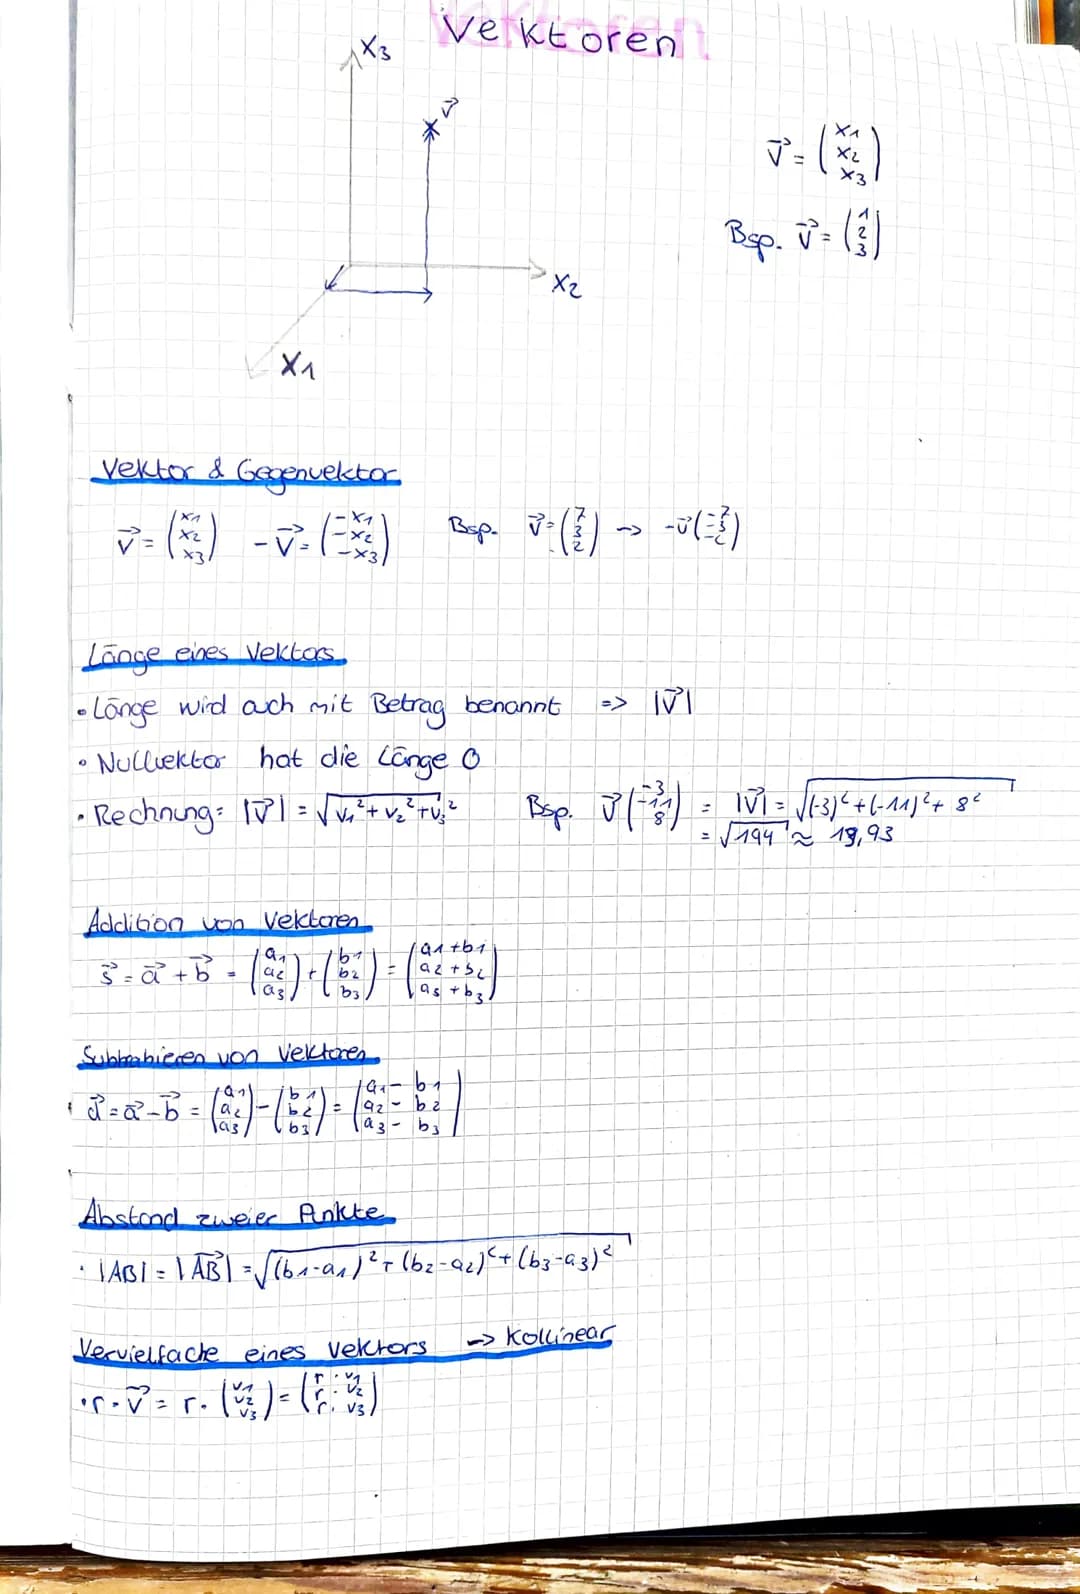 Vektoren
X3
v⃗
X2
X1
v⃗ = (x1 x2 x3)
Bsp. v⃗ = (1 2 3)
Vektor & Gegenvektor
v⃗ = (x1 x2 x3) -v⃗ = (-x1 -x2 -x3) Bsp. v⃗ = (7 3 2) → -v⃗ (-7 -3 -2)
Länge eines Vektors
• Länge wird auch mit Betrag benannt => |v⃗|
• Nullvektor hat die Länge 0
• Rechnung: |v⃗| = √v1² + v2² + v3² Bsp. v⃗ (-3 -11 8) = |v⃗| = √(-3)² + (-11)² + 8²
= √194 ≈ 13,93
Addition von Vektoren
s⃗ = a⃗ + b⃗ = (a1 a2 a3) + (b1 b2 b3) = (a1+b1 a2+b2 a3+b3)
Subtrahieren von Vektoren
d⃗ = a⃗ - b⃗ = (a1 a2 a3) - (b1 b2 b3) = (a1-b1 a2-b2 a3-b3)
Abstand zweier Punkte
• |AB| = |AB⃗| = √(b1-a1)² + (b2-a2)² + (b3-a3)²
Vervielfache eines Vektors → Kollinear
• r · v⃗ = r · (v1 v2 v3) = (r · v1 r · v2 r · v3)